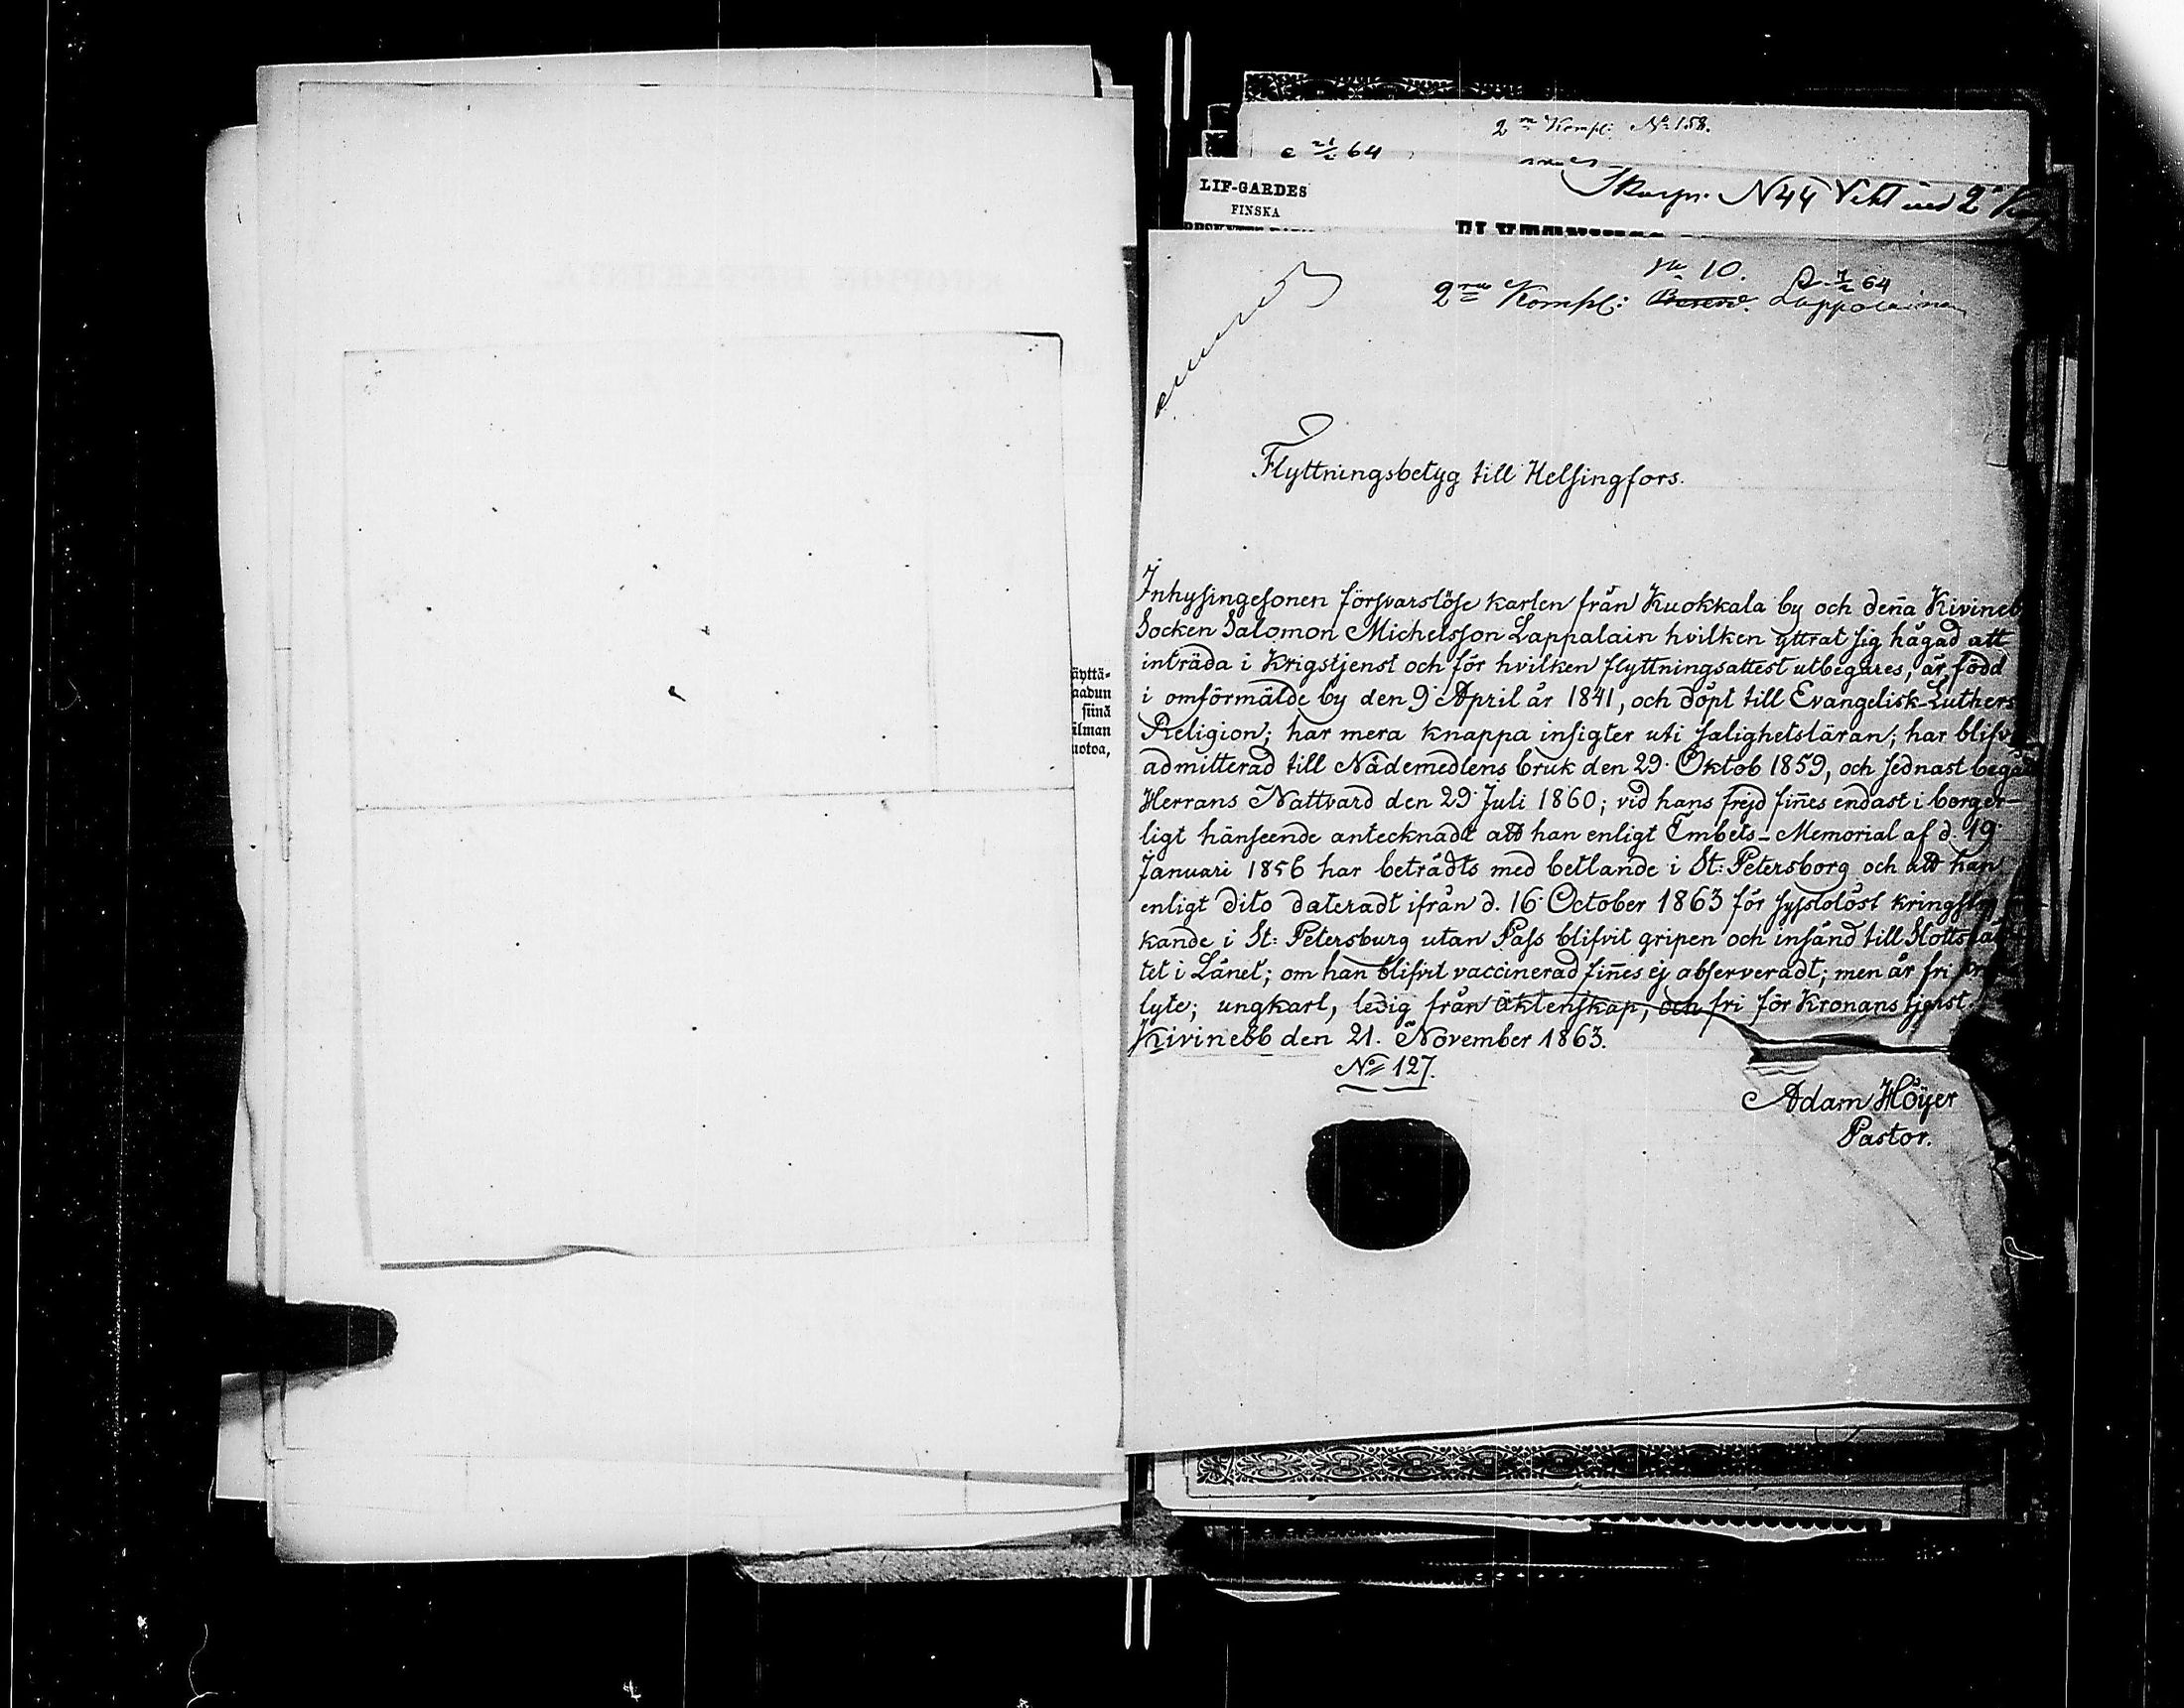 äyttä-
aadun
siinä
ilman
uotoa,
2 Kompl: No 158.
21/2 64
LIF-GARDES
FINSKA
N 44 2
No 10.
7/2 64
2 Kompl: Lappolainen
Flyttningsbetyg till Helsingfors.
Inhysingesonen försvarslöse karlen från Kuokkala by och deña Kivineb
Socken Salomon Michelsson Lappalain hvilken yttrat sig hågad att
inträda i Krigstjenst och för hvilken flyttningsattest utbegäres, är född
i omförmälde by den 9 April år 1841, och döpt till Evangelisk-Luthers
Religion; har mera knappa insigter uti salighetsläran; har blifv
admitterad till Nådemedlens bruk den 29 Oktob 1859, och sednast begå
Herrans Nattvard den 29 Juli 1860; vid hans frejd fiñes endast i borger-
ligt hänseende antecknadt att han enligt Embets-Memorial af d. 19
Januari 1856 har beträdts med bettlande i St: Petersborg och att han
enligt dito dateradt ifrån d. 16 October 1863 för sysslolöst kringstry
kande i St: Petersburg utan Pass blifvit gripen och insänd till Slottshäk
tet i Länet; om han blifvit vaccinerad fiñes ej observeradt; men är fri för
lyte; ungkarl, ledig från äktenskap, och fri för Kronans tjenst.
Kivinebb den 21. November 1863.
No 127.
Adam Höijer
Pastor.